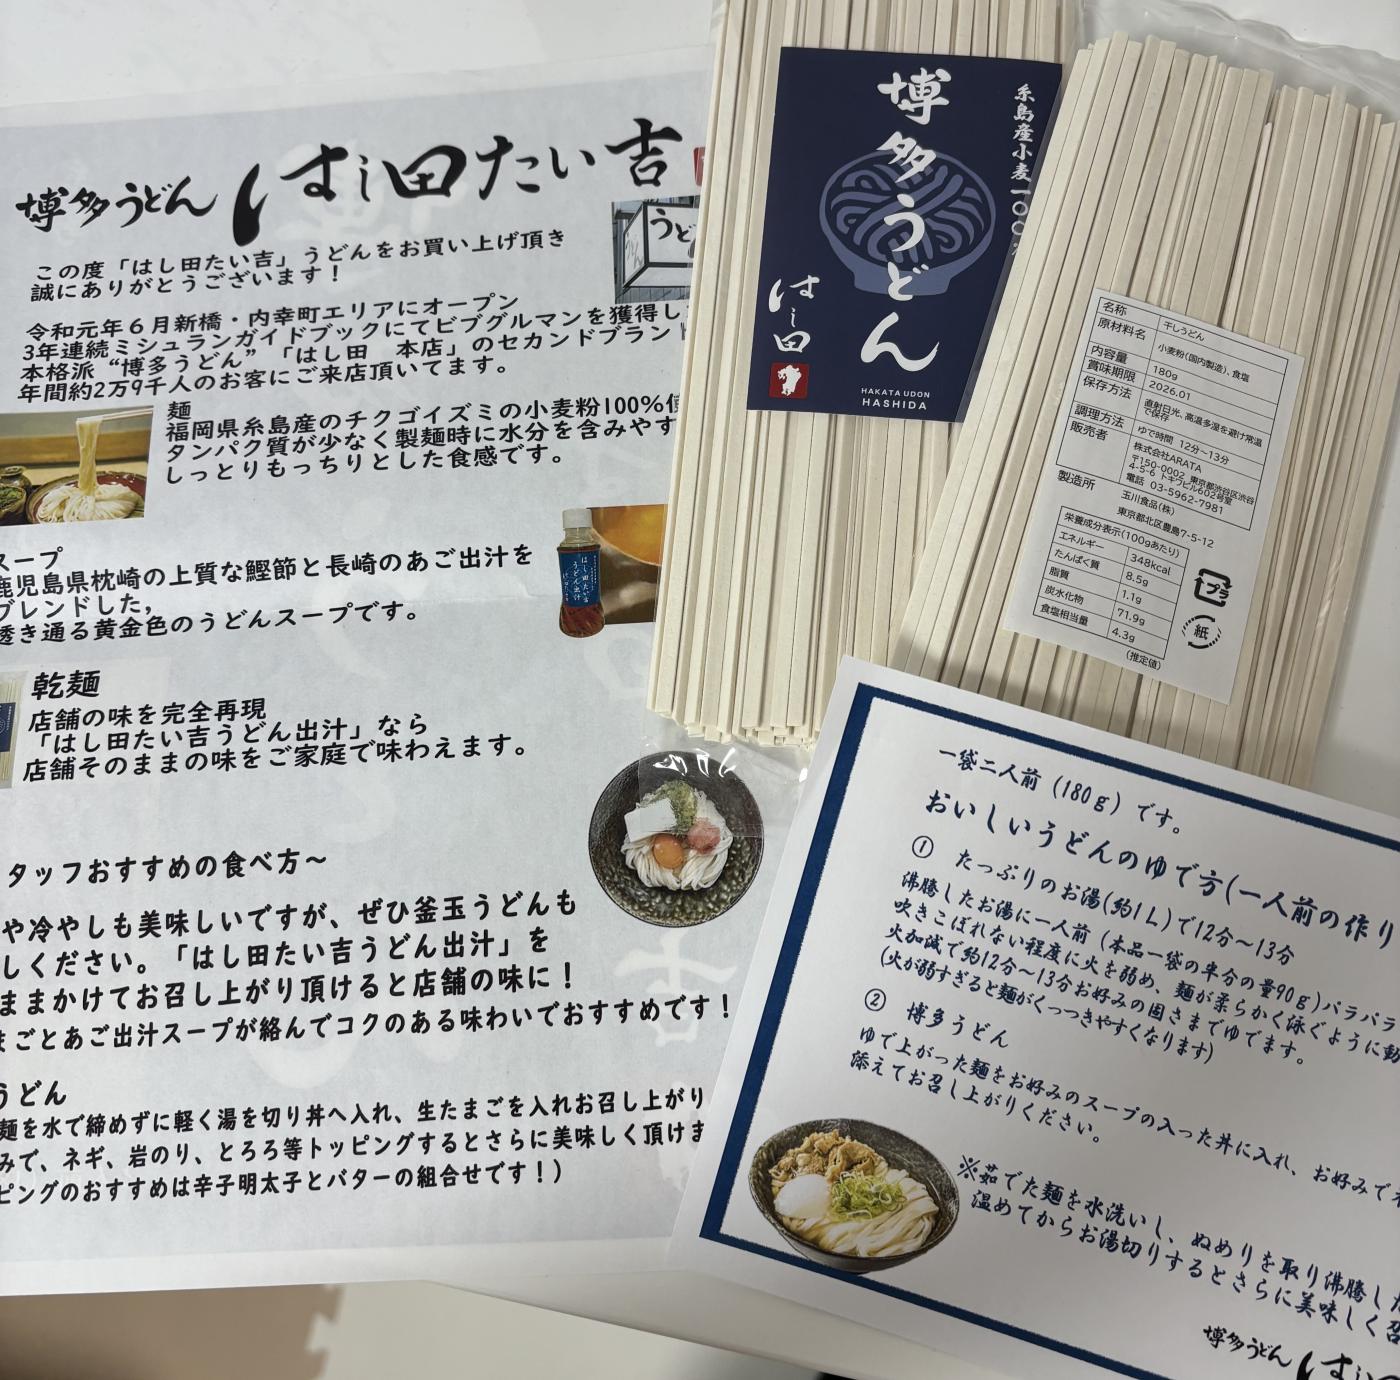 博多うどん はし田たい吉
この度「はし田たい吉」うどんをお買い上げ頂き
誠にありがとうございます！
令和元年６月新橋・内幸町エリアにオープン
3年連続ミシュランガイドブックにてビブグルマンを獲得し
本格派“博多うどん”「はし田　本店」のセカンドブラント
年間約2万9千人のお客にご来店頂いてます。
麺
福岡県糸島産のチクゴイズミの小麦粉100%使
タンパク質が少なく製麺時に水分を含みやす
しっとりもっちりとした食感です。
スープ
鹿児島県枕崎の上質な鰹節と長崎のあご出汁を
ブレンドした,
透き通る黄金色のうどんスープです。
乾麺
店舗の味を完全再現
「はし田たい吉うどん出汁」なら
店舗そのままの味をご家庭で味わえます。
タッフおすすめの食べ方～
や冷やしも美味しいですが、ぜひ釜玉うどんも
しください。「はし田たい吉うどん出汁」を
ままかけてお召し上がり頂けると店舗の味に！
まごとあご出汁スープが絡んでコクのある味わいでおすすめです！
うどん
麺を水で締めずに軽く湯を切り丼へ入れ、生たまごを入れお召し上がり
みで、ネギ、岩のり、とろろ等トッピングするとさらに美味しく頂けま
ピングのおすすめは辛子明太子とバターの組合せです！）
うど
はし田たい吉
うどん出汁
糸島産小麦一〇〇%
博多うどん
はし田
HAKATA UDON
HASHIDA
名称 干しうどん
原材料名 小麦粉(国内製造)、食塩
内容量 180g
賞味期限 2026.01
保存方法 直射日光、高温多湿を避け常温
で保存
調理方法 ゆで時間 12分～13分
販売者 株式会社ARATA
〒150-0002 東京都渋谷区渋谷
4-5-6 トキワビル602号室
電話 03-5962-7981
製造所 玉川食品(株)
東京都北区豊島7-5-12
栄養成分表示(100gあたり)
エネルギー 348kcal
たんぱく質 8.5g
脂質 1.1g
炭水化物 71.9g
食塩相当量 4.3g
(推定値)
プラ
紙
一袋二人前（180ｇ）です。
おいしいうどんのゆで方(一人前の作り
① たっぷりのお湯(約1Ｌ)で12分～13分
沸騰したお湯に一人前（本品一袋の半分の量90ｇ)パラパラ
吹きこぼれない程度に火を弱め、麺が柔らかく泳ぐように動
火加減で約12分～13分お好みの固さまでゆでます。
(火が弱すぎると麺がくっつきやすくなります)
② 博多うどん
ゆで上がった麺をお好みのスープの入った丼に入れ、お好みでネ
添えてお召し上がりください。
※茹でた麺を水洗いし、ぬめりを取り沸騰した
温めてからお湯切りするとさらに美味しく召
博多うどん はし田